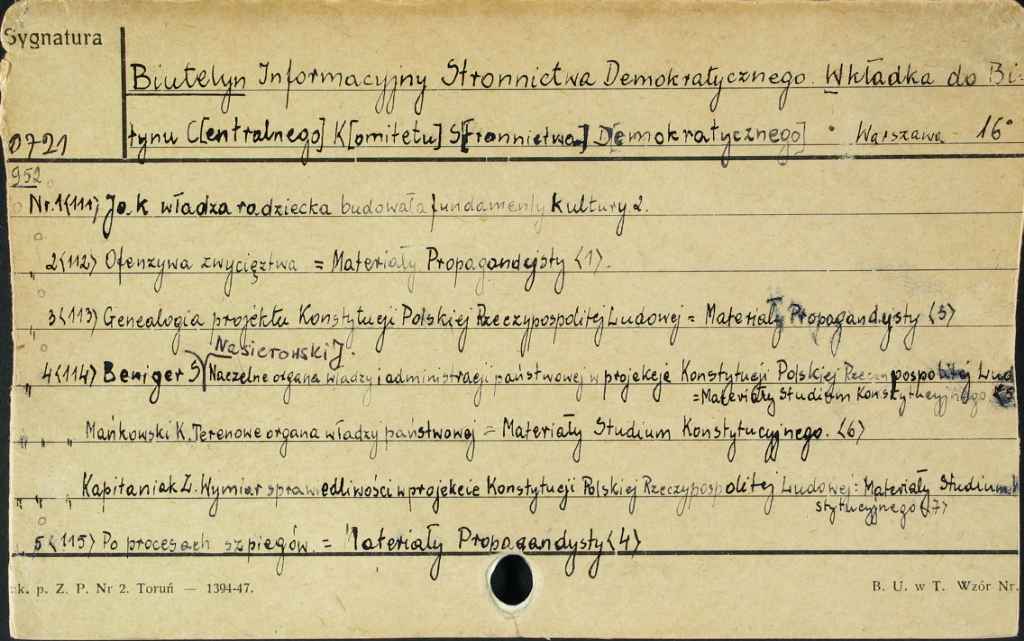 Sygnatura
Biuletyn Informacyjny Stronnictwa Demokratycznego. Wkładka do Bi-
0721 tynu C[entralnego] K[omitetu] S[tronnictwa] D[emokratycznego] • Warszawa 16°
952
Nr. 1<111> Jak władza radziecka budowała fundamenty kultury 2.
" 2<112> Ofenzywa zwycięztwa = Materiały Propagandysty <1>.
" 3<113> Genealogia projektu Konstytucji Polskiej Rzeczypospolitej Ludowej = Materiały Propagandysty <3>
Nasierowski J.
" 4<114> Beniger S Naczelne organa władzy i administracji państwowej w projekcje Konstytucji Polskiej Rzeczypospolitej Lud
=Materiały Studium Konstytucyjnego <5
" " " Mańkowski K. Terenowe organa władzy państwowej = Materiały Studium Konstytucyjnego. <6>
" " " Kapitaniak Z. Wymiar sprawiedliwości w projekcie Konstytucji Polskiej Rzeczypospolitej Ludowej = Materiały Studium
stytucyjnego <7>
" 5<115> Po procesach szpiegów. = Materiały Propagandysty <4>
k. p. Z. P. Nr 2. Toruń — 1394-47. B. U. w T. Wzór Nr.